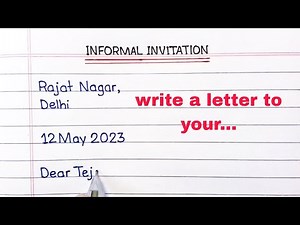 INFORMAL INVITATION
Rajat Nagar,
Delhi
write a letter to
your...
12 May 2023
Dear Tej